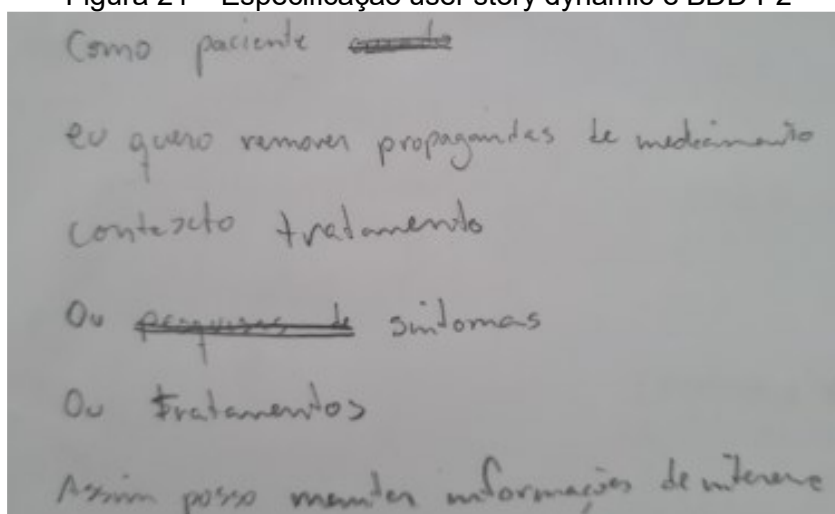 Figura 21 – Especificação user story dynamic e BDD P2
Como paciente
eu quero remover propagandas de medicamento
contexto tratamento
Ou pesquisas de sintomas
Ou tratamentos
Assim posso manter informações de interesse